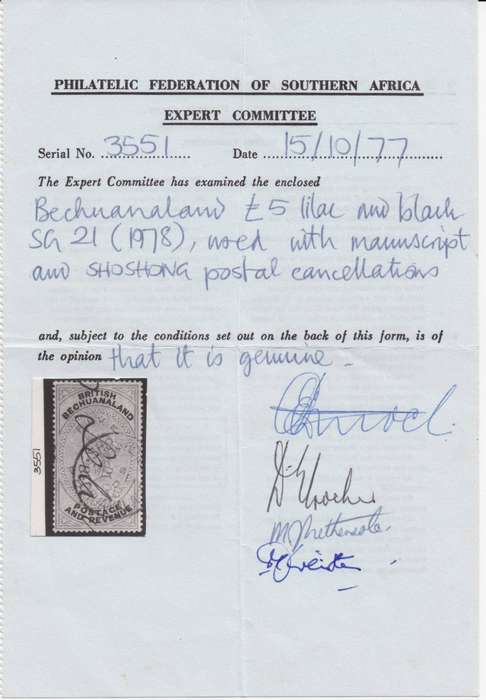 PHILATELIC FEDERATION OF SOUTHERN AFRICA
EXPERT COMMITTEE
Serial No. 3551 Date 15/10/77
The Expert Committee has examined the enclosed
Bechuanaland £5 lilac and black
SG 21 (1978), used with manuscript
and SHOSHONG postal cancellations
and, subject to the conditions set out on the back of this form, is of
the opinion that it is genuine.
3551
BRITISH
BECHUANALAND
POSTAGE
AND REVENUE